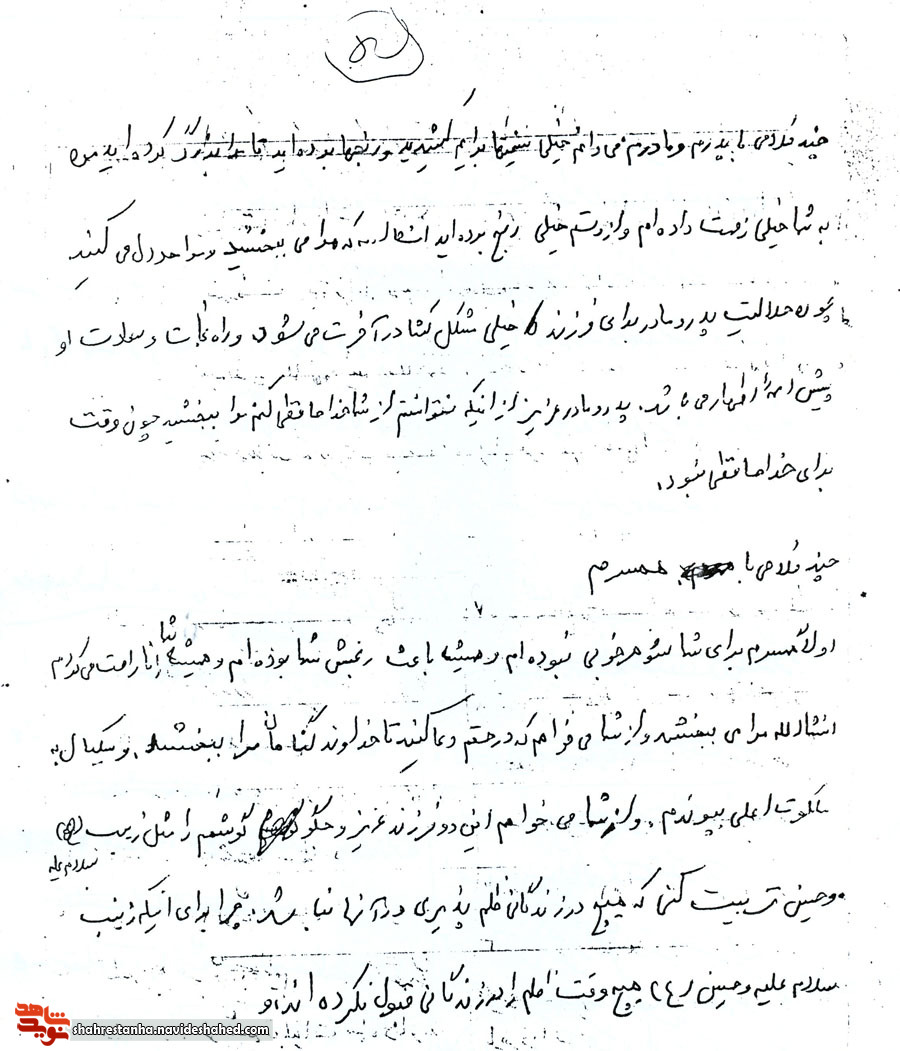 ۵
چند کلامی با پدرم و مادرم می دانم خیلی سختیها برایم کشیدید و رنجها برده اید تا مرا بزرگ کرده اید من
به شما خیلی زحمت داده ام و از دستم خیلی رنج برده اید انشاالله که مرا می بخشید و مرا حلال می کنید
چون حلالیت پدر و مادر برای فرزند خیلی مشکل گشا در آخرت می شود و راه نجات و سعادت او
پیش الله اظهار می باشد. پدر و مادر عزیز از اینکه نتوانستم از شما خداحافظی کنم مرا ببخشید چون وقت
برای خداحافظی نبود.
چند کلامی با همسرم
اولاً همسرم برای شما شوهر خوبی نبوده ام و همیشه باعث رنجش شما بوده ام و همیشه شما را ناراحت می کردم
انشاالله مرا می بخشید و از شما می خواهم که در حقم دعا کنید تا خداوند گناهان مرا ببخشد. و سبکبال به
ملکوت اعلی بپیوندم. و از شما می خواهم این دو فرزند عزیز و جگر گوشهم را مثل زینب
سلام علیه
و حسین تربیت کنی که هیچ در زندگانی ظلم پذیری در آنها نباشد. چرا برای اینکه زینب
سلام علیه و حسین (ع) هیچ وقت ظلم را در زندگانی قبول نکرده اند و
نوید شاهد
shahrestanha.navideshahed.com